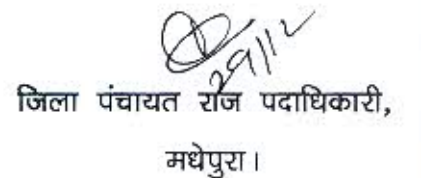 29/12
जिला पंचायत राज पदाधिकारी,
मधेपुरा।